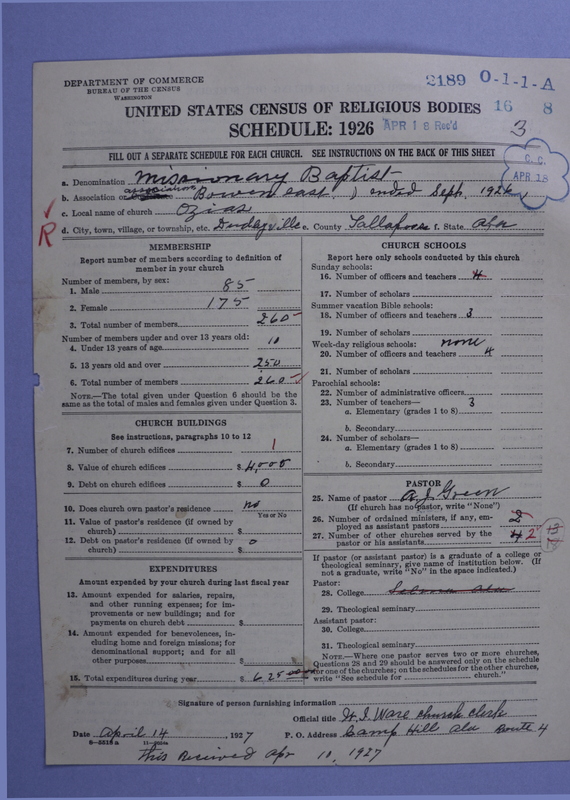 DEPARTMENT OF COMMERCE
BUREAU OF THE CENSUS
WASHINGTON
2189 0-1-1-A
16 8
UNITED STATES CENSUS OF RELIGIOUS BODIES
SCHEDULE: 1926
APR 18 Rec'd
3
C. C.
APR 18
FILL OUT A SEPARATE SCHEDULE FOR EACH CHURCH. SEE INSTRUCTIONS ON THE BACK OF THIS SHEET
a. Denomination Missionary Baptist
association
b. Association or Bowen east. ended Sept. 1926
c. Local name of church Ozias
d. City, town, village, or township, etc. Dudleyville e. County Tallapoosa f. State Ala
R
MEMBERSHIP
Report number of members according to definition of
member in your church
Number of members, by sex:
1. Male 85
2. Female 175
3. Total number of members 260
Number of members under and over 13 years old:
4. Under 13 years of age 10
5. 13 years old and over 250
6. Total number of members 260
NOTE.—The total given under Question 6 should be the
same as the total of males and females given under Question 3.
CHURCH BUILDINGS
See instructions, paragraphs 10 to 12
7. Number of church edifices 1
8. Value of church edifices $ 4,000
9. Debt on church edifices $ 0
10. Does church own pastor's residence no
Yes or No
11. Value of pastor's residence (if owned by
church) $
12. Debt on pastor's residence (if owned by 0
church) $
EXPENDITURES
Amount expended by your church during last fiscal year
13. Amount expended for salaries, repairs,
and other running expenses; for im-
provements or new buildings; and for
payments on church debt $
14. Amount expended for benevolences, in-
cluding home and foreign missions; for
denominational support; and for all
other purposes $
15. Total expenditures during year $ 625
CHURCH SCHOOLS
Report here only schools conducted by this church
Sunday schools:
16. Number of officers and teachers 4
17. Number of scholars
Summer vacation Bible schools:
18. Number of officers and teachers 3
19. Number of scholars
Week-day religious schools: none
20. Number of officers and teachers 4
21. Number of scholars
Parochial schools:
22. Number of administrative officers
23. Number of teachers— 3
a. Elementary (grades 1 to 8)
b. Secondary
24. Number of scholars—
a. Elementary (grades 1 to 8)
b. Secondary
PASTOR
25. Name of pastor A. J. Green
(If church has no pastor, write "None")
26. Number of ordained ministers, if any, em-
ployed as assistant pastors 2
27. Number of other churches served by the
pastor or his assistants 4 2
If pastor (or assistant pastor) is a graduate of a college or
theological seminary, give name of institution below. (If
not a graduate, write "No" in the space indicated.)
Pastor:
28. College Selma Ala
29. Theological seminary
Assistant pastor:
30. College
31. Theological seminary
NOTE.—Where one pastor serves two or more churches,
Questions 28 and 29 should be answered only on the schedule
for one of the churches; on the schedules for the other churches,
write "See schedule for church."
Signature of person furnishing information
Official title W. I. Ware church clerk
Date April 14, 1927 P. O. Address Camp Hill Ala Route 4
8—5518 a
this Received Apr 10, 1927